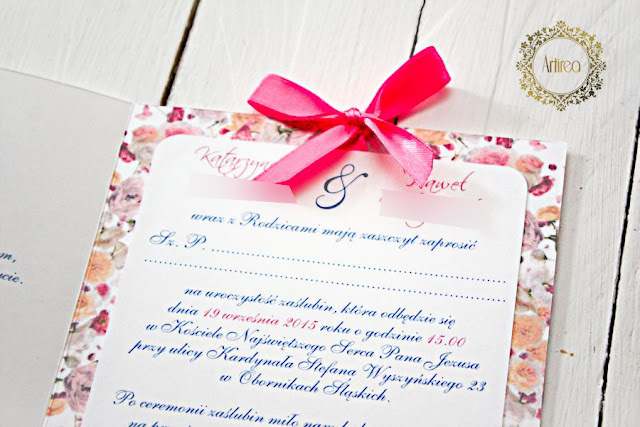 Artirea
Katarzyn
&
Paweł
wraz z Rodzicami mają zaszczyt zaprosić
Sz. P. ..........................................
..........................................
na uroczystość zaślubin, która odbędzie się
dnia 19 września 2015 roku o godzinie 15.00
w Kościele Najświętszego Serca Pana Jezusa
przy ulicy Kardynała Stefana Wyszyńskiego 23
w Obornikach Śląskich.
Po ceremonii zaślubin miło nam